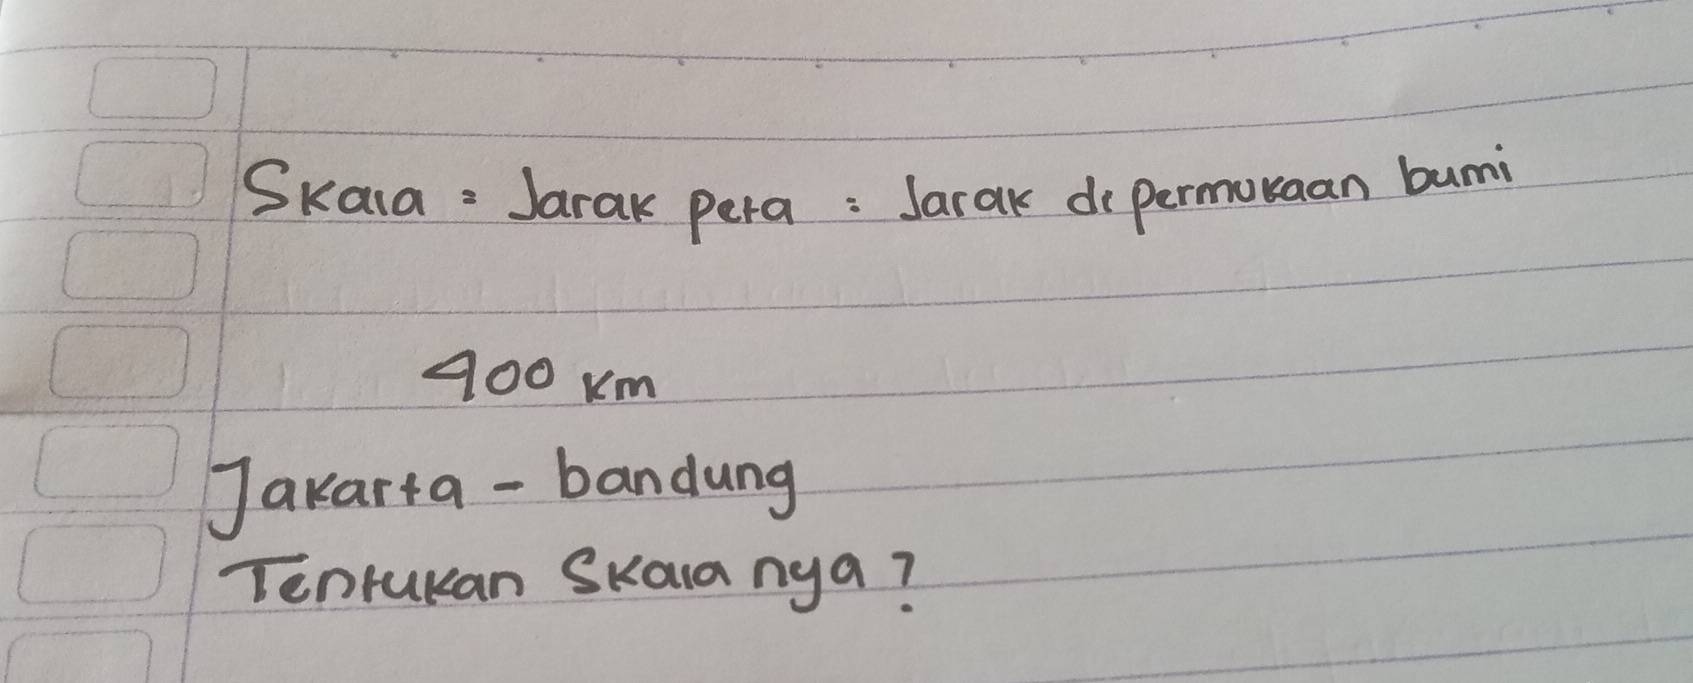 Skala = Jarak peta : Jarak di permukaan bumi
400 km
Jakarta - bandung
Tentukan Skala nya?